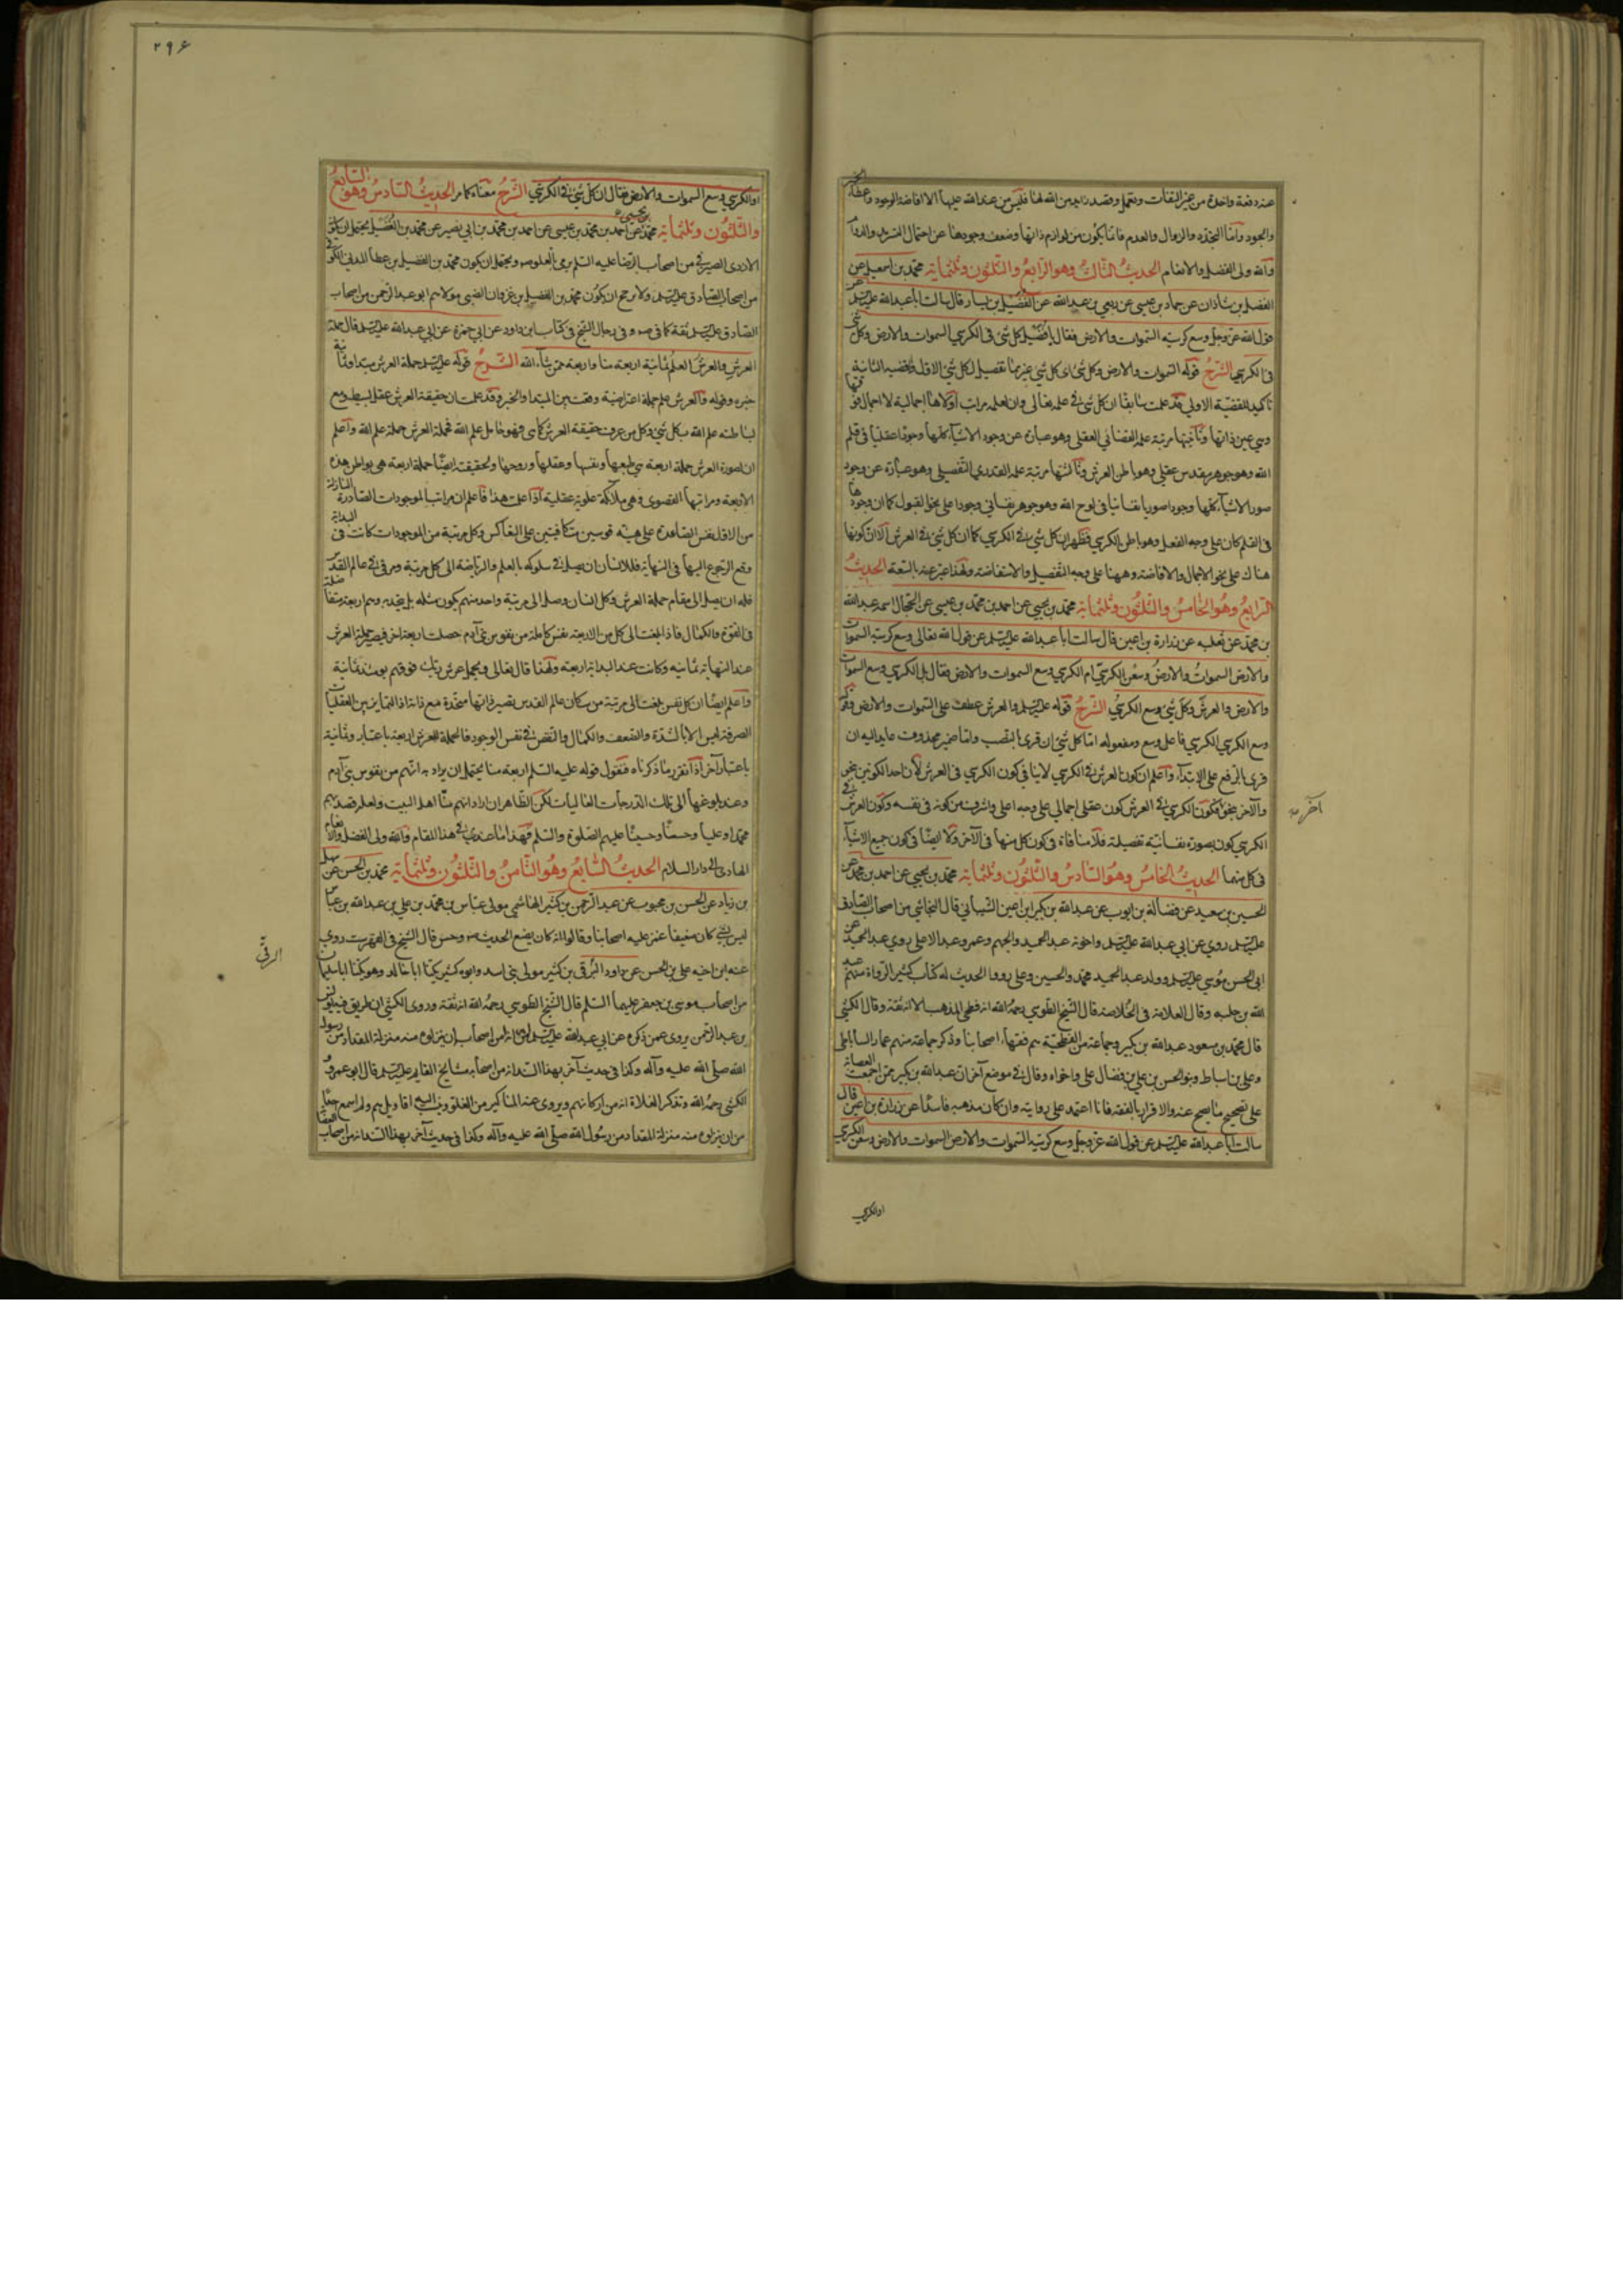 عنه دفعة واحدة من غير التفات وتعمل وقصد زايد من الله لها فليس من عند الله عليها الا افاضة الوجود واعطاء الخير
والجود وأما التجدد والزوال والعدم فانما يكون من لوازم ذاتها وضعف وجودها عن احتمال السرمد والدوام
والله ولي الفضل والانعام الحديث الثالث وهو الرابع والثلثون وثلثمائة محمد بن اسمعيل عن
الفضل بن شاذان عن حماد بن عيسى عن ربعي بن عبدالله عن الفضيل بن يسار قال سالت ابا عبدالله عليه السلم عن
قول الله عز وجل وسع كرسيه السموات والارض فقال يا فضيل كل شئ في الكرسي السموات والارض وكل شئ
في الكرسي الشرح قوله السموات والارض وكل شئ اى كل شئ غيرهما تفصيل لكل شئ الاول فالقضيه الثانية
تاكيد للقضية الاولى قد علمت سابقا ان كل شئ في علمه تعالى وان لعلمه مراتب اولاها اجمالية لا اجمال فوقها
وهي عين ذاتها وثانيتها مرتبة علمه القضائي العقلي وهو عبارة عن وجود الاشياء كلها وجودا عقليا في قلم
الله وهو جوهر مقدس عقلي وهو باطن العرش وثالثتها مرتبة علمه القدري التفصيلي وهو عبارة عن وجود
صور الاشياء كلها وجودا صوريا نفسانيا في لوح الله وهو جوهر نفساني وجودا على نحو القبول كما ان وجودها
في القلم كان على وجه الفعل وهو باطن الكرسي فظهر ان كل شئ في الكرسي كما ان كل شئ في العرش الا ان كونها
هناك على نحو الاجمال والافاضة وههنا على وجه التفصيل والاستفاضة ولهذا عبر عنه بالسعة الحديث
الرابع وهو الخامس والثلثون وثلثمائة محمد بن يحيى عن احمد بن محمد بن عيسى عن الحجال اسمه عبدالله
بن محمد عن ثعلبه عن زرارة بن اعين قال سالت ابا عبدالله عليه السلم عن قول الله تعالى وسع كرسيه السموات
والارض السموات والارض وسعن الكرسي ام الكرسي وسع السموات والارض فقال بل الكرسي وسع السموات
والارض والعرش وكل شئ وسع الكرسي الشرح قوله عليه السلم والعرش عطف على السموات والارض وقوله
وسع الكرسي الكرسي فاعل وسع ومفعوله اما كل شئ ان قرى بالنصب واما ضمير محذوف عايد اليه ان
قرى بالرفع على الابتداء واعلم ان كون العرش في الكرسي لاينافي كون الكرسي في العرش لأن احد الكونين بنحو
والآخر بنحو آخر فكون الكرسي في العرش كون عقلي اجمالي على وجه اعلى واشرف من كونه في نفسه وكون العرش في
الكرسي كون بصورة نفسانية تفصيلة فلا منافاة في كون كل منها في الآخر ولا ايضا في كون جميع الاشياء
في كل منهما الحديث الخامس وهو السادس والثلثون وثلثمائة محمد بن يحيى عن احمد بن محمد عن
الحسين بن سعيد عن فضالة بن ايوب عن عبدالله بن بكير ابن اعين الشيباني قال النجاشي من اصحاب الصادق
عليه السلم روى عن ابي عبدالله عليه السلم واخوته عبدالحميد والجهم وعمرو عبد الاعلى روى عبد الحميد عن
ابى الحسن موسى عليه السلم وولد عبد الحميد محمد والحسين وعلى رووا الحديث له كتاب كثير الرواة منهم عبد
الله بن جبله وقال العلامة في الخلاصه قال الشيخ الطوسي رحمه الله انه فطحى المذهب الا انه ثقة وقال الكشي
قال محمد بن مسعود عبدالله بن بكير وجماعة من الفطحية هم فقهاء اصحابنا وذكر جماعة منهم عمار الساباطي
وعلى بن اسباط وبنو الحسن بن علي بن فضال على واخواه وقال في موضع آخر ان عبدالله بن بكير ممن اجمعت العصابة
على تصحيح ما يصح عنه والاقرار بالفقه فانا اعتمد على روايته وان كان مذهبه فاسدا عن زرارة بن اعين قال
سالت ابا عبدالله عليه السلم عن قول الله عز وجل وسع كرسيه السموات والارض السموات والارض وسعن الكرسي
آخر صح
او الكرسي
۲۹۶
او الكرسي وسع السموات والارض فقال ان كل شئ في الكرسي الشرح معناه كما مر الحديث السادس وهو السابع
والثلثون وثلثمائة محمد بن يحيى عن احمد بن محمد بن عيسى عن احمد بن محمد بن ابي نصر عن محمد بن الفضيل يحتمل ان يكون
الازدى الصيرفي من اصحاب الرضا عليه السلم يرمى بالغلو صه ويحتمل ان يكون محمد بن الفضيل بن عطا المدني الكوفي
من اصحاب الصادق عليه السلم والارجح ان يكون محمد بن الفضيل بن غزوان الضبي مولاهم ابو عبد الرحمن من اصحاب
الصادق عليه السلم ثقة كما في صه وفي رجال الشيخ في كتاب ابن داود عن ابي حمزة عن ابي عبدالله عليه السلم قال حملة
العرش والعرش العلم ثمانية اربعة منا واربعة ممن شاء الله الشرح قوله عليه السلم حملة العرش مبتدا وثمانية
خبره وقوله والعرش العلم جملة اعتراضية وقعت بين المبتدا والخبر وقد علمت ان حقيقة العرش عقل بسيط ومع
لباطنه علم الله بكل شئ وكل من عرف حقيقة العرش كما هى فهو حامل علم الله فحملة العرش حملة علم الله واعلم
ان لصورة العرش حملة اربعة هي طبعها ونفسها وعقلها وروحها ولحقيقته ايضا حملة اربعة هي بواطن هذه
الاربعة ومراتبها القصوى وهى ملائكة علوية عقلية اذا علمت هذا فاعلم ان مراتب الموجودات الصادرة النازلة
من الاول نفس الصاعدة على هيئة قوسين متكافيتين على التعاكس وكل مرتبة من الموجودات كانت في البداية
وقع الرجوع اليها في النهاية فللانسان ان يصل في سلوكه بالعلم والرياضة الى كل مرتبة ومرقى في عالم القدس
فله ان يصل الى مقام حملة العرش وكل انسان وصل الى مرتبة واحد منهم يكون مثله بل يتحد به وهم اربعة متفاضلة
في القوة والكمال فاذا بلغت الى كل من الاربعة نفس كاملة من نفوس بني آدم حصلت اربعة اخرى فيصير حملة العرش
عند النهاية ثمانيه وكانت عند البداية اربعة ولهذا قال تعالى ويحمل عرش ربك فوقهم يومئذ ثمانية
واعلم ايضا ان كل نفس بلغت الى مرتبة من سكان عالم القدس تصير ذاتها متحدة مع ذاته اذ التمايز بين العقليات
الصرفة ليس الا بالشدة والضعف والكمال والنقص في نفس الوجود فالحملة للعرش اربعة باعتبار وثمانية
باعتبار آخر اذا تقرر ما ذكرناه فنقول قوله عليه السلم اربعة منا يحتمل ان يراد به انهم من نفوس بني آدم
وعند بلوغها الى تلك الدرجات العاليات لكن الظاهر ان اراد انهم منا اهل البيت ولعلهم قصد بهم
محمدا وعليا وحسنا وحسينا عليهم الصلوة والسلم فهذا ما عندي في هذا المقام والله ولى الفضل والانعام
الهادى الى دار السلام الحديث السابع وهو الثامن والثلثون وثلثمائة محمد بن الحسن عن سهل
بن زياد عن الحسن بن محبوب عن عبد الرحمن بن كثير الهاشمي مولى عباس بن محمد بن علي بن عبدالله بن عباس
ليس بشئ كان ضعيفا غمز عليه اصحابنا وقالوا انه كان يضع الحديث صه وجش قال الشيخ في الفهرست روى
عنه ابن اخيه على بن الحسن عن داود الرقي بن كثير مولى بني اسد وابوه كثير يكنا ابا خالد وهو يكنا ابا سليمان
من اصحاب موسى بن جعفر عليهما السلم قال الشيخ الطوسي رحمه الله انه ثقة وروى الكشي ان طريق فيه يونس
بن عبد الرحمن يروى عمن ذكره عن ابي عبدالله عليه السلم انه امر اصحابه ان ينزلوه منه منزلة المقداد من رسول
الله صلى الله عليه وآله وكذا في حديث آخر بهذا السند انه من اصحاب القايم عليه السلم قال ابو عمرو
الكشي رحمه الله وتذكر الغلاة انه من اركانهم ويروى عنه المناكير من الغلو وينسب اليه اقاويلهم ولم اسمع احدا
من ان ينزلوه منه منزلة المقداد من رسول الله صلى الله عليه وآله وكذا في حديث آخر بهذا السند انه من اصحاب
الرقي